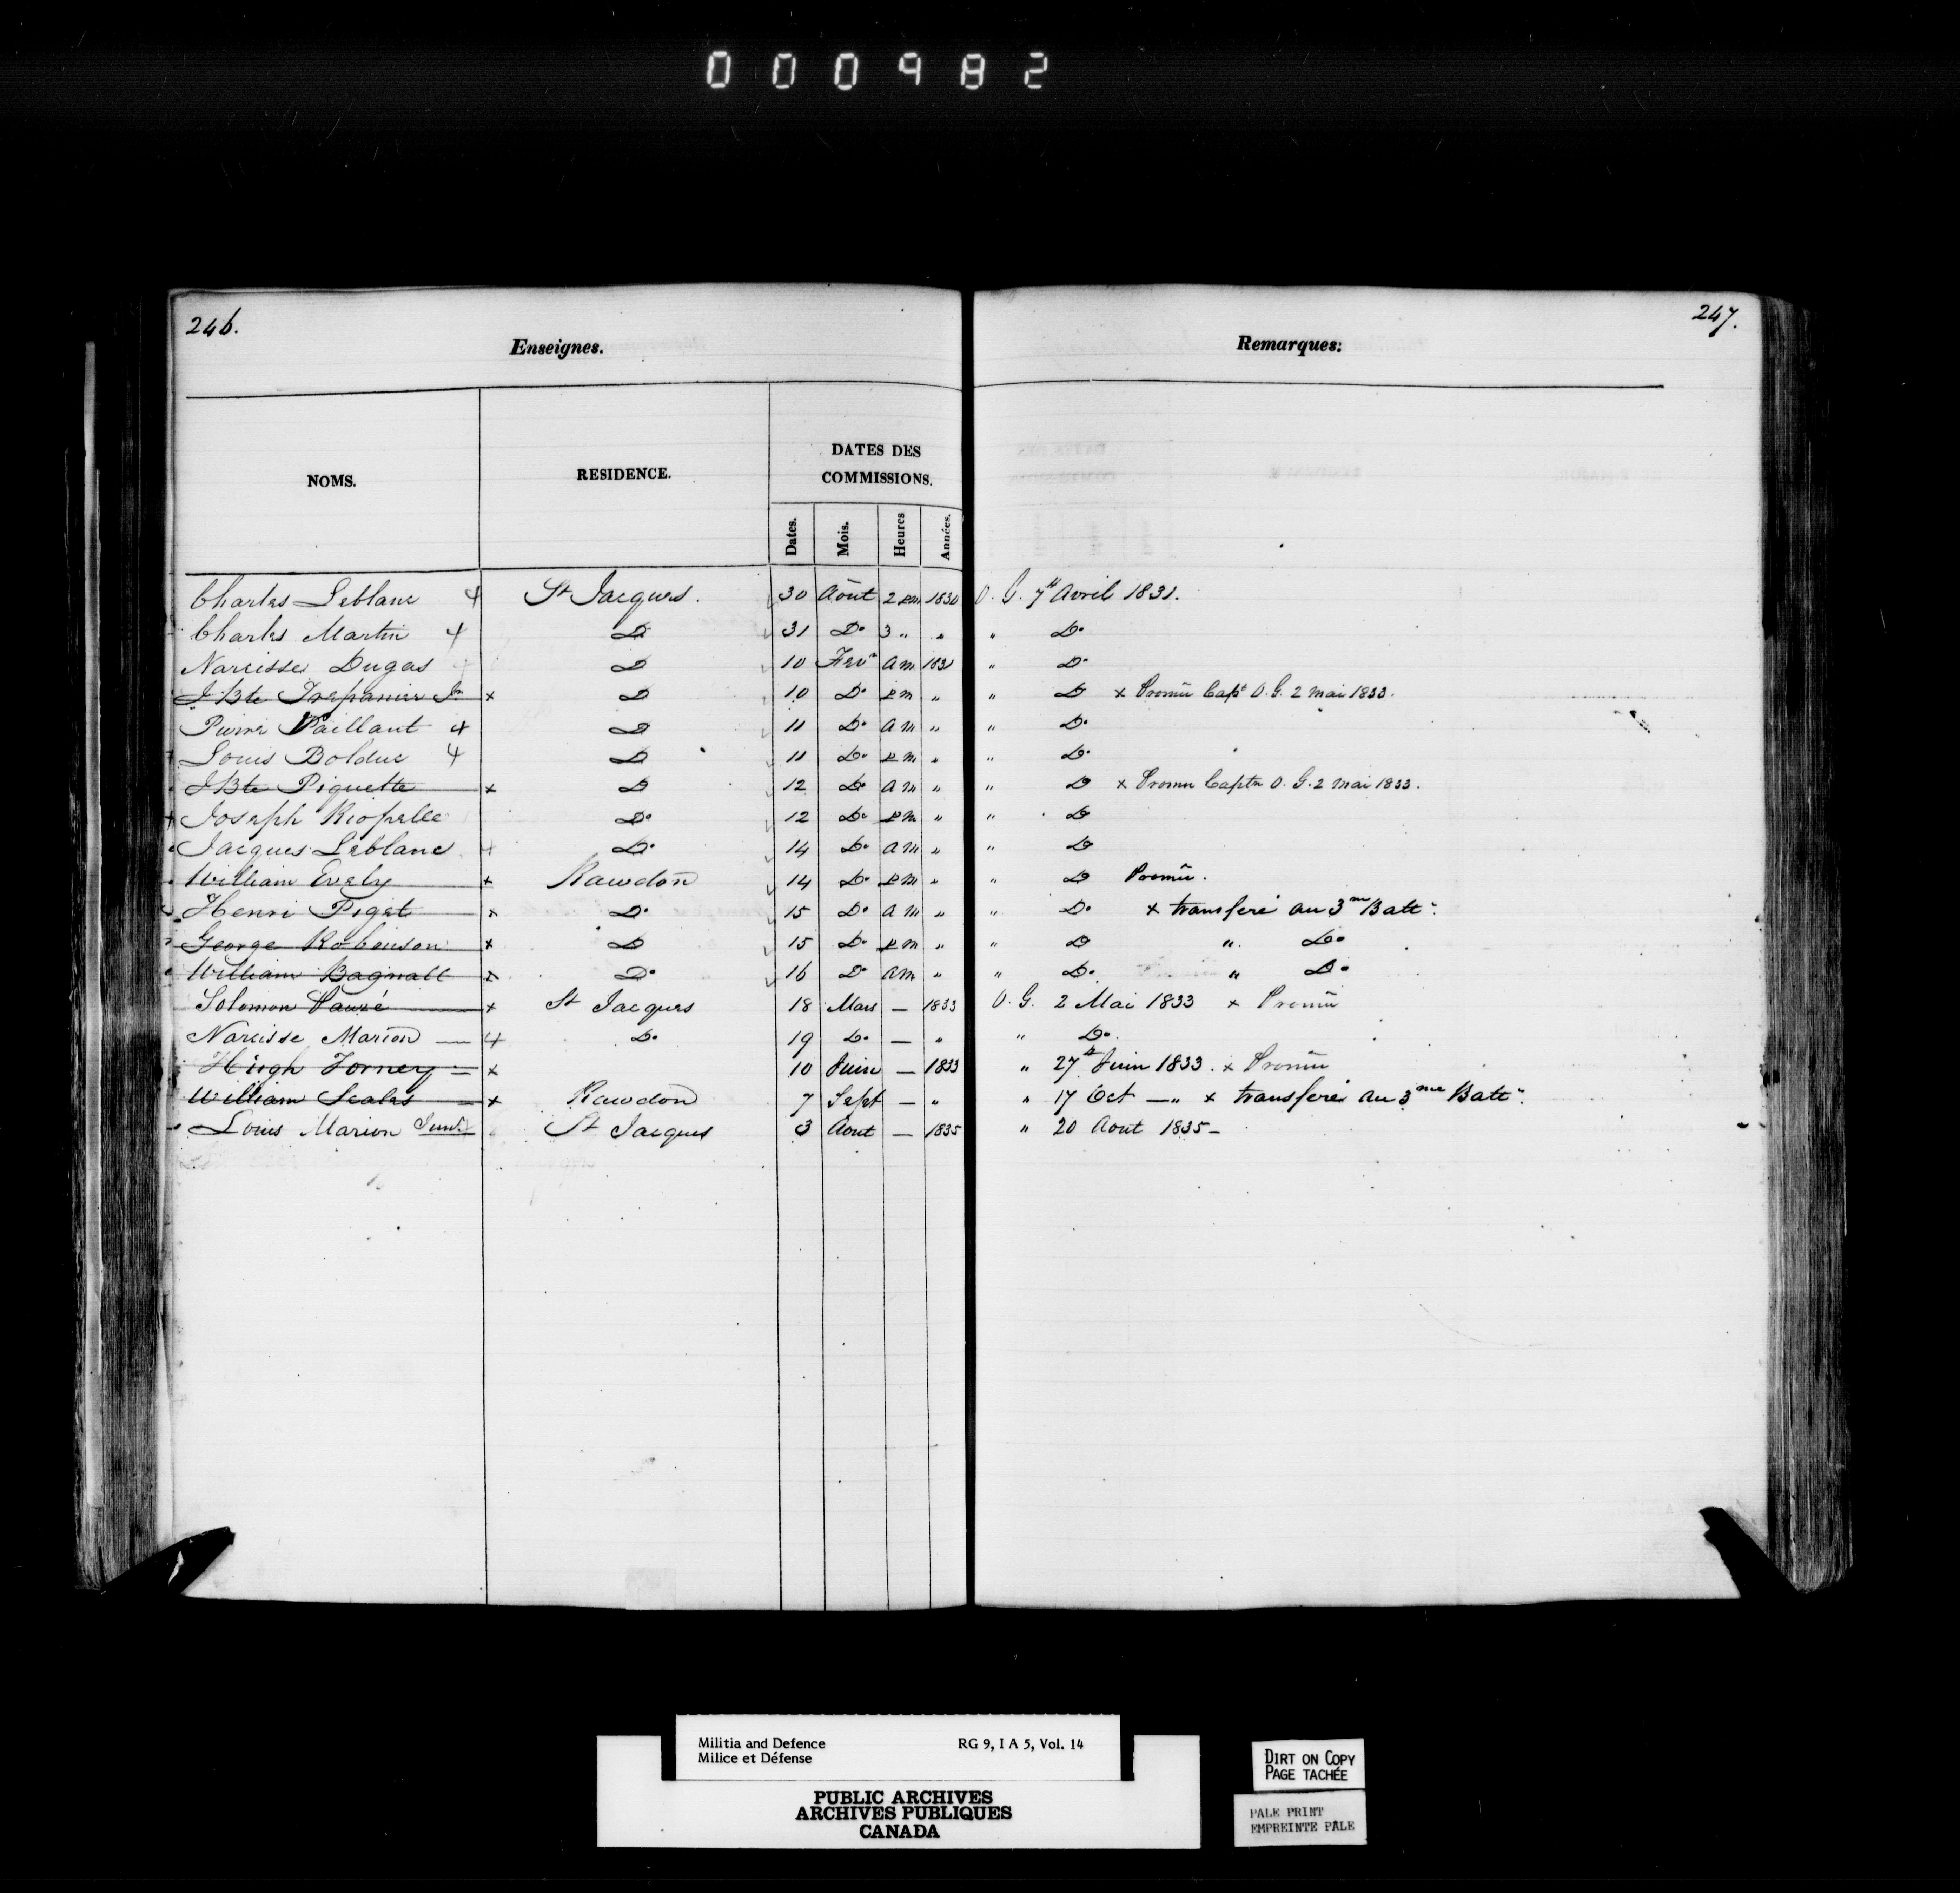 000982
246.
Enseignes.
NOMS. RESIDENCE. DATES DES COMMISSIONS.
Dates. Mois. Heures Années.
Charles Leblanc 4 St Jacques. 30 Août 2 pm 1830
Charles Martin 4 D 31 Do 3 " "
Narcisse Dugas D 10 Fevr am 1831
J Bte Trepanier Jr x D 10 Do pm "
Pierre Vaillant 4 D 11 Do am "
Louis Bolduc 4 D 11 Do pm "
J Bte Piquette x D 12 Do am "
Joseph Riopelle Do 12 Do pm "
Jacques Leblanc Do 14 Do am "
William Evely x Rawdon 14 Do pm "
Henri Piget x Do 15 Do am "
George Robinson x D 15 Do pm "
William Bagnall x Do 16 Do am "
Solomon Pauzé x St Jacques 18 Mars — 1833
Narcisse Marion — 4 Do 19 Do — "
Hugh Forney — x 10 Juin — 1833
William Scales — x Rawdon 7 Sept — "
Louis Marion Junr St Jacques 3 Aout — 1835
247.
Remarques:
O. G. 7 Avril 1831.
" Do
" Do
" D x Promû Capt O. G. 2 mai 1833.
" Do
" Do
" D x Promu Captn O. G. 2 mai 1833.
" D
" D
" D Promû.
" Do x transferé au 3me Batt.
" D " Do
" Do " Do
O. G. 2 Mai 1833 x Promû
" Do
" 27 Juin 1833. x Promû
" 17 Oct — " x transferé au 3me Batt.
" 20 Aout 1835 –
Militia and Defence RG 9, I A 5, Vol. 14
Milice et Défense
PUBLIC ARCHIVES
ARCHIVES PUBLIQUES
CANADA
DIRT ON COPY
PAGE TACHÉE
PALE PRINT
EMPREINTE PÂLE